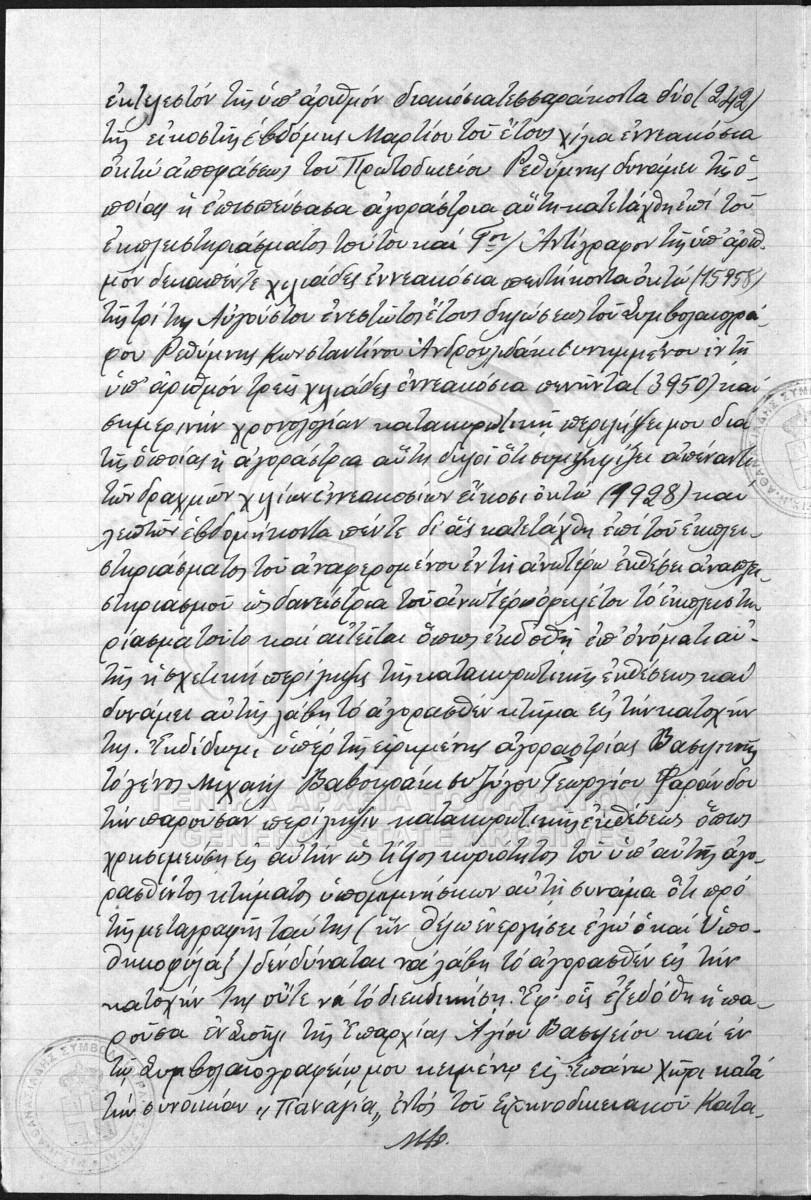 ἐκτελεστόν τῆς ὑπ' ἀριθμόν διακόσια τεσσαράκοντα δύο (242)
τῆς εἰκοστῆς ἑβδόμης Μαρτίου τοῦ ἔτους χίλια ἐννεακόσια
ὀκτώ ἀποφάσεως τοῦ Πρωτοδικείου Ρεθύμνης δυνάμει τῆς ὁ-
ποίας ἡ ἐπισπεύσασα ἀγοράστρια αὕτη κατετάχθη ἐπί τοῦ
ἐκπλειστηριάσματος τούτου καί Γον/ Ἀντίγραφον τῆς ὑπ' ἀριθ-
μόν δεκαπέντε χιλιάδες ἐννεακόσια πεντήκοντα ὀκτώ (15958)
τῆς τρίτης Αὐγούστου ἐνεστῶτος ἔτους δηλώσεως τοῦ Συμβολαιογρά-
φου Ρεθύμνης Κωνσταντίνου Ἀνδρουλιδάκι συνημμένου ἐν τῇ
ὑπ' ἀριθμόν τρεῖς χιλιάδες ἐννεακόσια πενῆντα (3950) καί
σημερινήν χρονολογίαν κατακυρωτικῇ περιλήψει μου διά
τῆς ὁποίας ἡ ἀγοράστρια αὕτη δηλοῖ ὅτι συμψηφίζει ἀπέναντι
τῶν δραχμῶν χιλίων ἐννεακοσίων εἴκοσι ὀκτώ (1928) καί
λεπτῶν ἑβδομήκοντα πέντε δι' ἅς κατετάχθη ἐπί τοῦ ἐκπλει-
στηριάσματος τοῦ ἀναφερομένου ἐν τῇ ἀνωτέρω ἐκθέσει ἀναπλει-
στηριασμοῦ ὡς δανείστρια τοῦ ἀνωτέρω ὀφειλέτου τό ἐκπλειστη-
ρίασμα τοῦτο καί αἰτεῖται ὅπως ἐκδοθῇ ἐπ' ὀνόματι αὐ-
τῆς ἡ σχετική περίληψις τῆς κατακυρωτικῆς ἐκθέσεως καί
δυνάμει αὐτῆς λάβῃ τό ἀγορασθέν κτῆμα εἰς τήν κατοχήν
της. Ἐκδίδωμι ὑπέρ τῆς εἰρημένης ἀγοραστρίας Βασιλικῆς
τό γένος Μιχαήλ Βαβουράκι συζύγου Γεωργίου Φαράνδου
τήν παροῦσαν περίληψιν κατακυρωτικῆς ἐκθέσεως ὅπως
χρησιμεύσῃ εἰς αὐτήν ὡς τίτλος κυριότητος τοῦ ὑπ' αὐτῆς ἀγο-
ρασθέντος κτήματος ὑπομιμνήσκων αὐτῇ συνάμα ὅτι πρό
τῆς μεταγραφῆς ταύτης (ἥν θέλω ἐνεργήσει ἐγώ ὁ καί Ὑπο-
θηκοφύλαξ) δέν δύναται νά λάβῃ τό ἀγορασθέν εἰς τήν
κατοχήν της οὔτε νά τό διεκδικήσῃ. Ἐφ' οἷς ἐξεδόθη ἡ πα-
ροῦσα ἐν Σπήλι τῆς Ἐπαρχίας Ἁγίου Βασιλείου καί ἐν
τῷ Συμβολαιογραφείῳ μου κειμένῳ εἰς Ἐπάνω χῶρι κατά
τήν συνοικίαν "Παναγία" ἐντός τοῦ Εἰρηνοδικειακοῦ Κατα-
ΓΕΝΙΚΑ ΑΡΧΕΙΑ ΤΟΥ ΚΡΑΤΟΥΣ
GENERAL STATE ARCHIVES